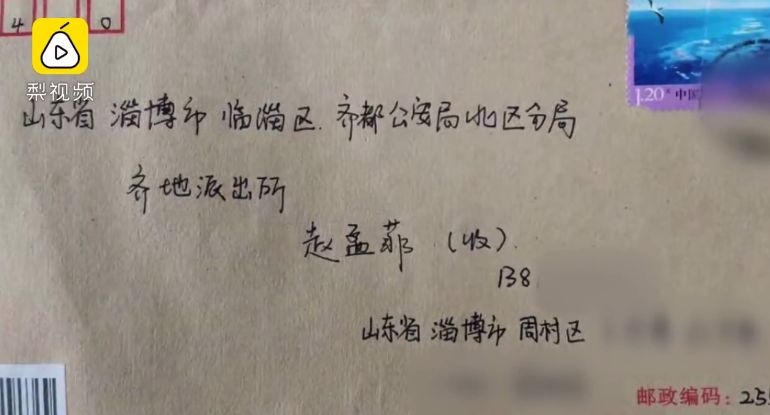 4 0
梨视频
1.20元 中国
山东省 淄博市 临淄区. 齐都公安局北区分局
齐地派出所
赵孟菲 (收).
138
山东省 淄博市 周村区
邮政编码: 255